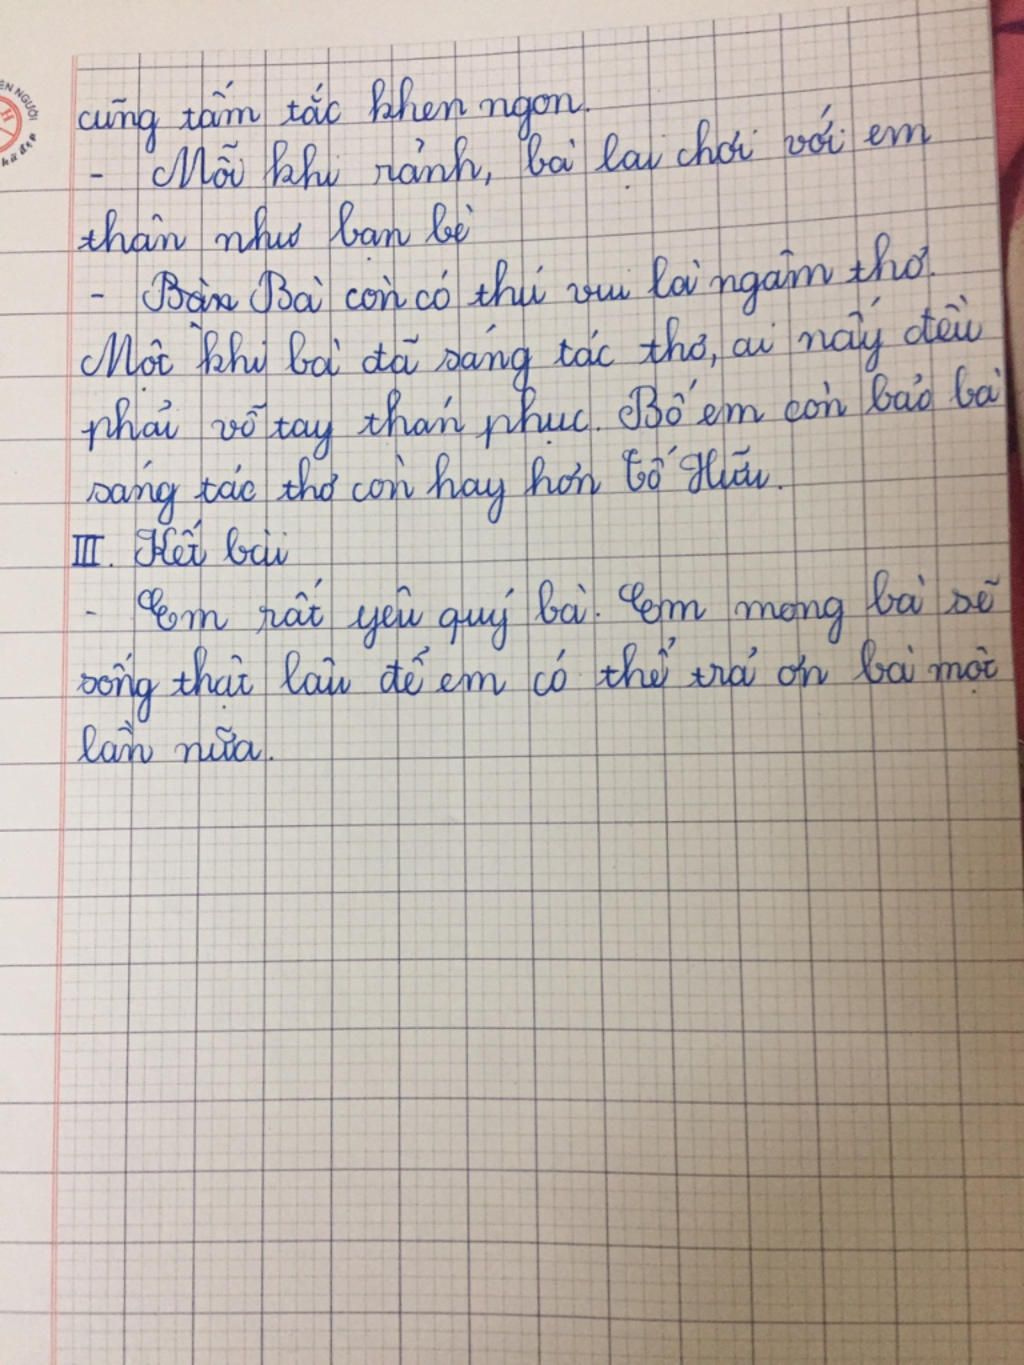 ÊN NGƯỜI
H
cũng tấm tắc khen ngon.
- Mỗi khi rảnh, bà lại chơi với em
thân như bạn bè
- Bàn Bà còn có thú vui là ngâm thơ.
Một khi bà đã sáng tác thơ, ai nấy đều
phải vỗ tay thán phục. Bố em còn bảo bà
sáng tác thơ còn hay hơn Tố Hữu.
III. Kết bài
- Em rất yêu quý bà. Em mong bà sẽ
sống thật lâu để em có thể trả ơn bà một
lần nữa.